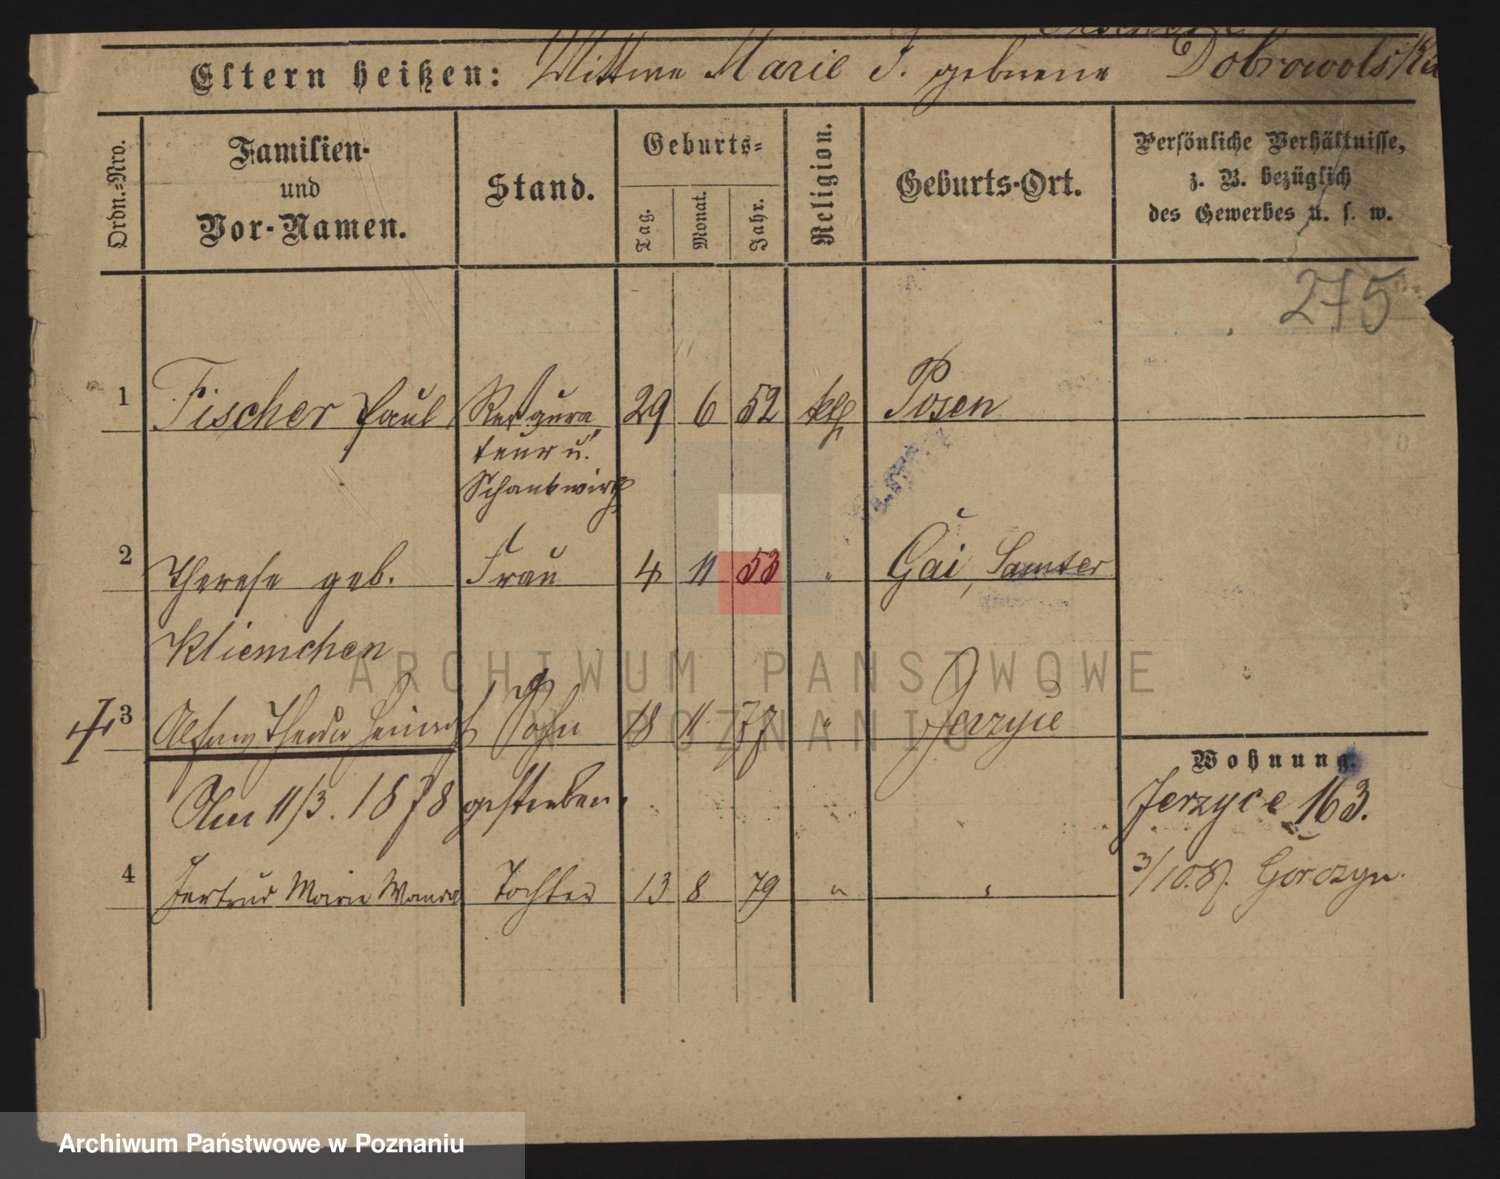 Eltern heißen: Wittwe Marie F. geborene Dobrowolska
Ordn.-Nro.
Familien- und Vor-Namen.
Stand.
Geburts-
Tag.
Monat.
Jahr.
Religion.
Geburts-Ort.
Persönliche Verhältnisse,
z. B. bezüglich
des Gewerbes u. s. w.
275
1 Fischer Paul 29 6 52 kth Posen
teur u.
Schankwirth
2 Therese geb. Frau 4 11 53 " Gai, Samter
Kliemchen
3 Theodor Heinrich Sohn 18 11 77 " Jerzyce
Am 11/3. 1878 gestorben.
Wohnung.
Jerzyce 163.
3/10.8. Gorczyn.
4 Gertrud Marie Wanda Tochter 13 8 79 " "
ARCHIWUM PAŃSTWOWE
W POZNANIU
Archiwum Państwowe w Poznaniu